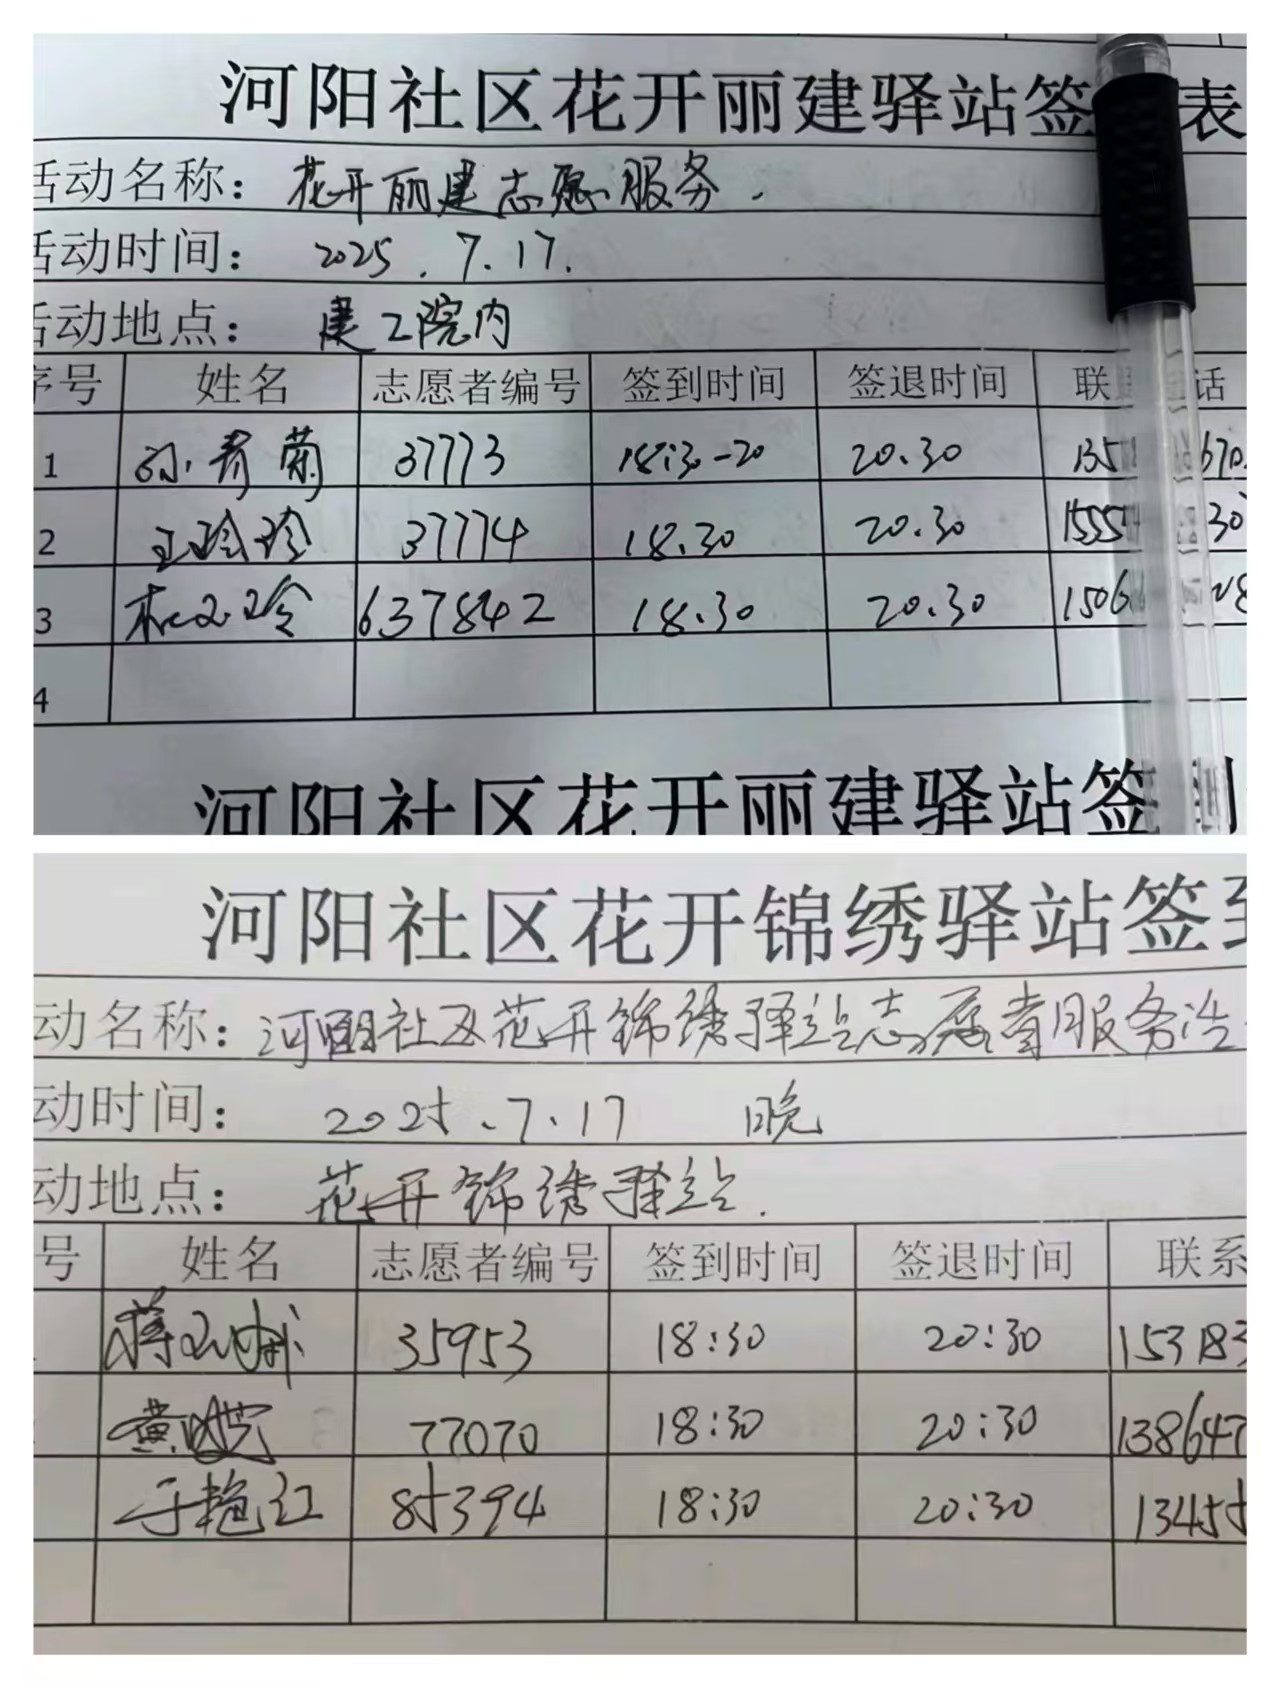 河阳社区花开丽建驿站签 表
活动名称： 花开丽建志愿服务.
活动时间： 2025.7.17.
活动地点： 建工院内
序号 姓名 志愿者编号 签到时间 签退时间 联 话
1 孙秀菊 37773 18:30-20 20.30 135 670
2 王玲玲 37774 18.30 20.30 1555 30
3 637842 18.30 20.30 1506 28
4
河阳社区花开丽建驿站签到
河阳社区花开锦绣驿站签到
动名称： 河阳社区花开锦绣驿站志愿者服务活
动时间： 2025.7.17 晚
动地点： 花开锦绣驿站.
号 姓名 志愿者编号 签到时间 签退时间 联系
35953 18:30 20:30 153183
黄 77070 18:30 20:30 138647
于艳红 85394 18:30 20:30 13455